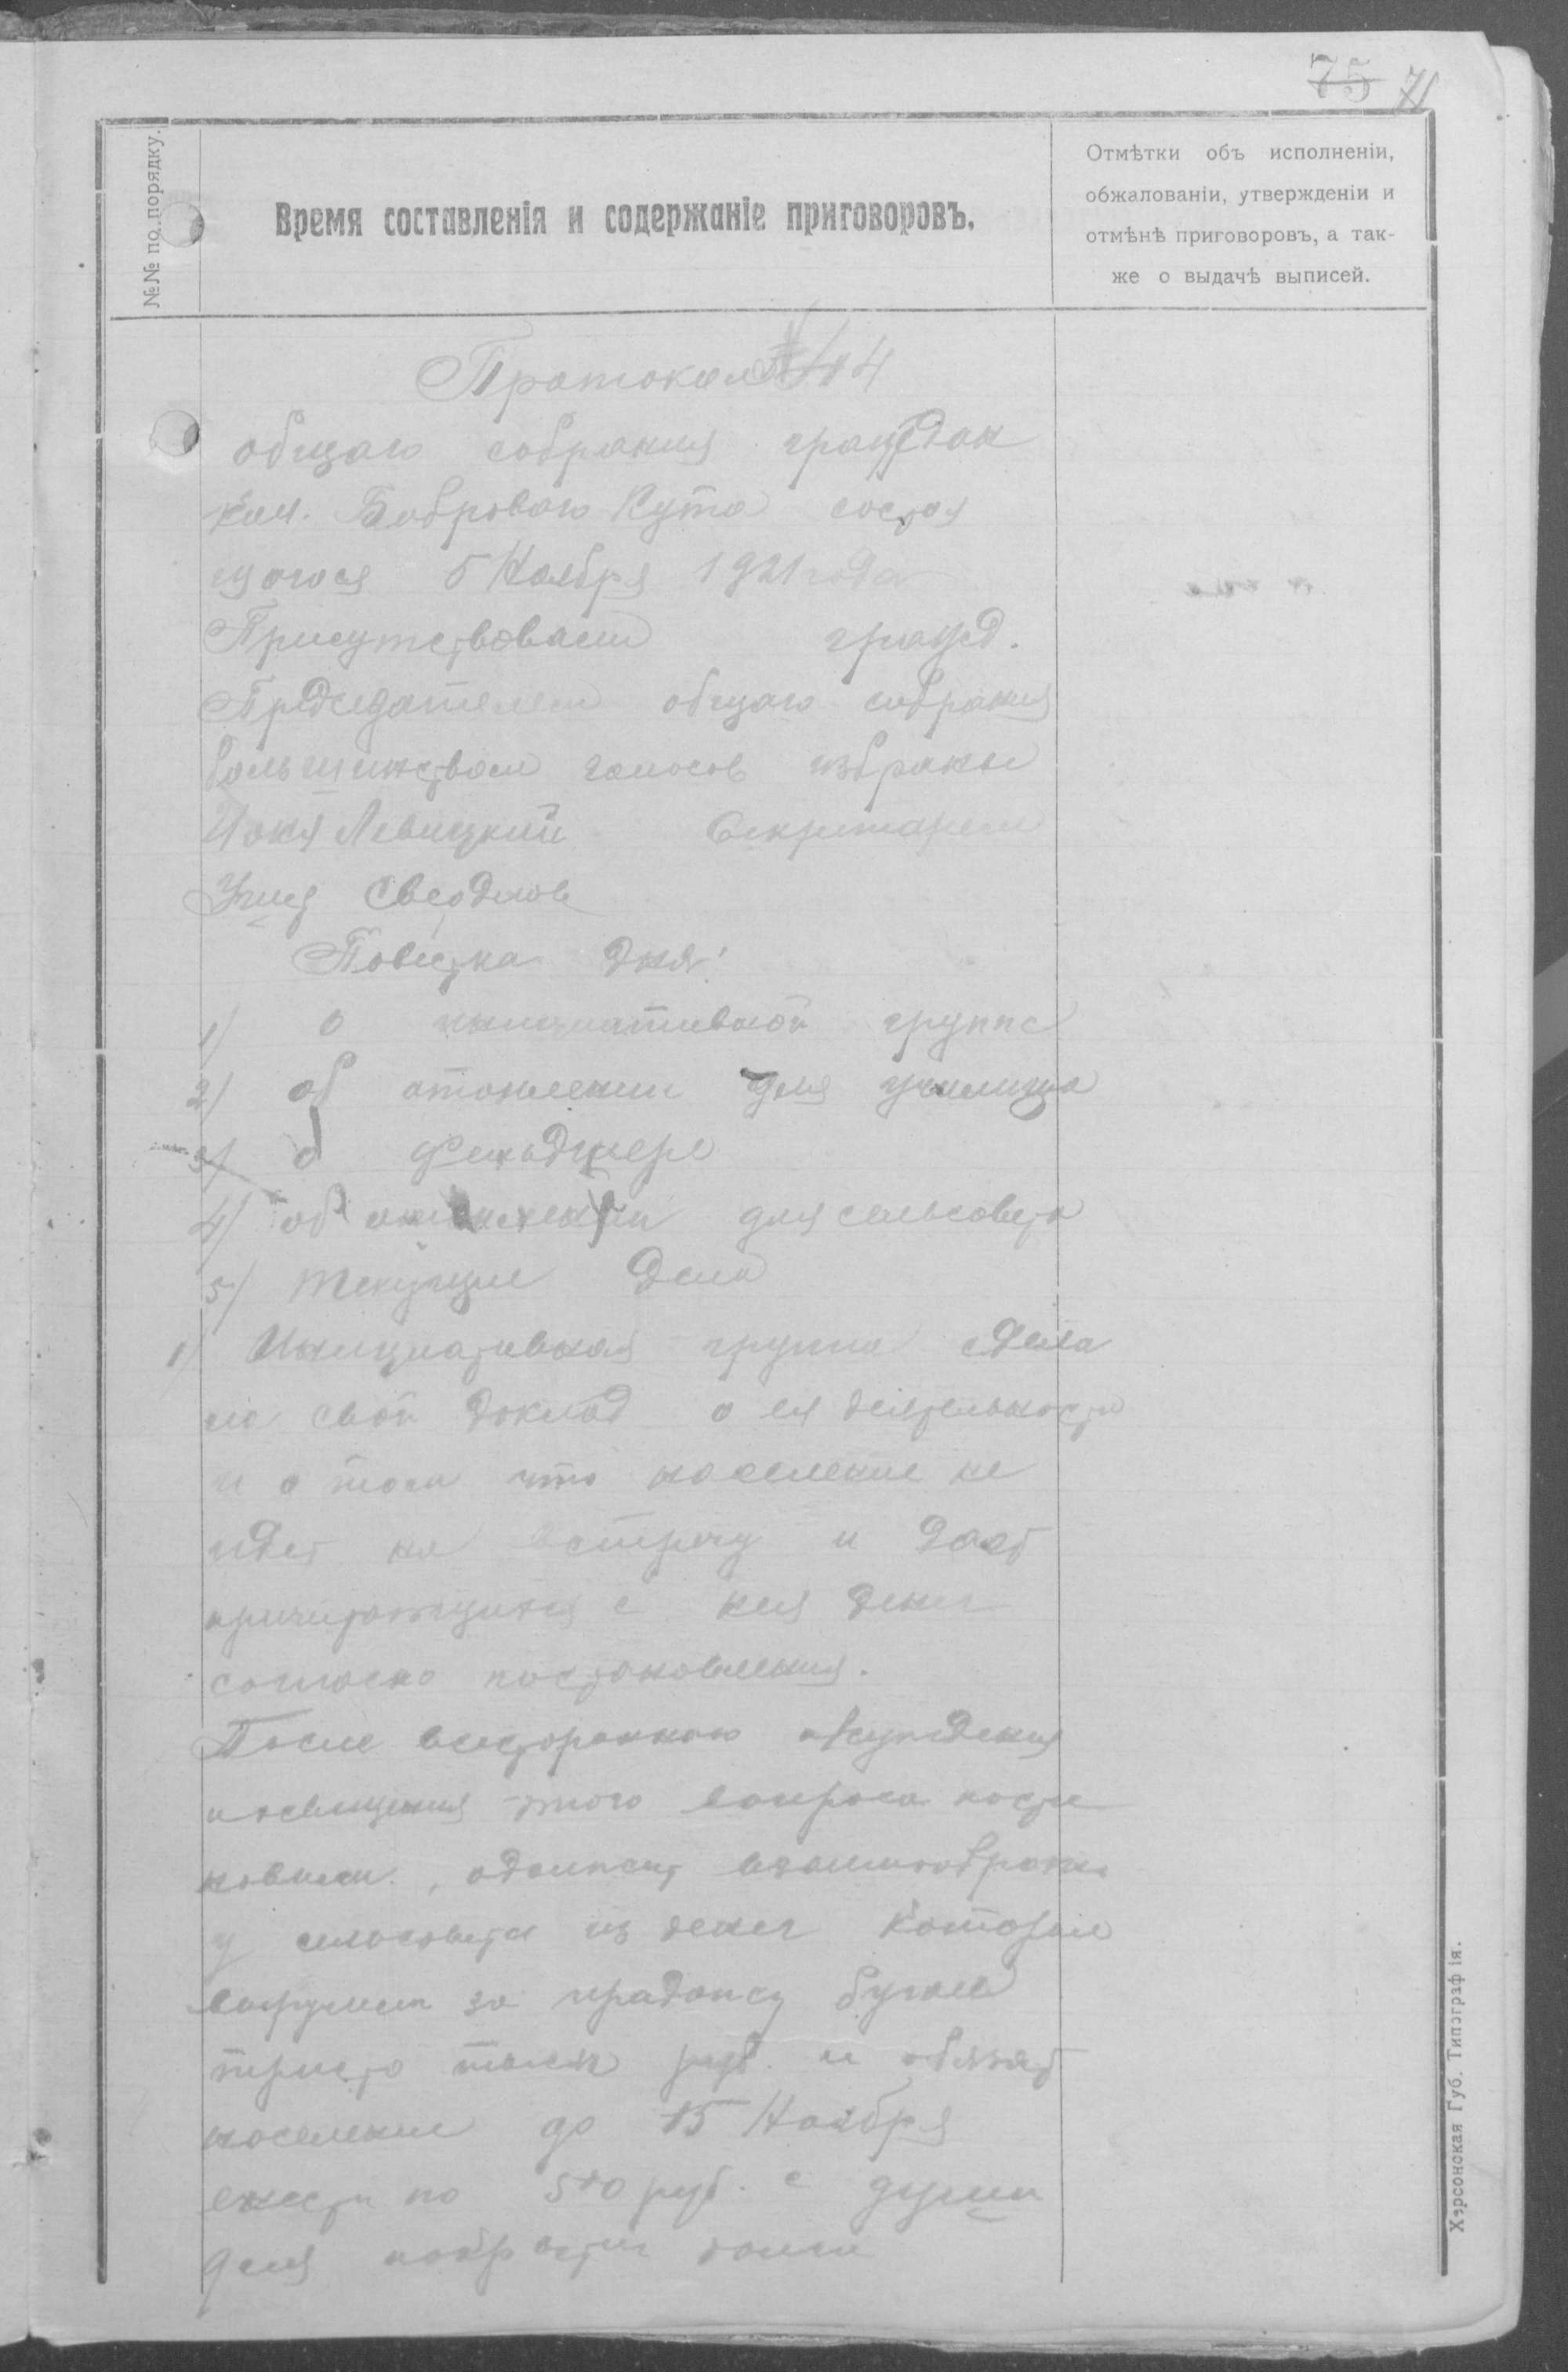 75 71
№№ по порядку.
Время составленія и содержаніе приговоровъ.
Отмѣтки объ исполненіи,
обжалованіи, утвержденіи и
отмѣнѣ приговоровъ, а так-
же о выдачѣ выписей.
Протокол № 44
общаго собрания граждан
кол. Бобровый Кута состоя
щагося 5 Ноября 1921 года
Присутствовали гражд.
Председателем общаго собрания
большинством голосов избраны
Левицкий Секретарем
Свердлов
Повестка дня:
1) о инициативной группе
2) об отоплении для училища
3) о фельдшере
4) об для сельсовета
5) текущие дела
1) Инициативная группа сдела
ла свой доклад о ея деятельности
и о том что население не
идет на встречу и дает
причитающихся с нея денег
согласно постановления.
После всестороннаго обсуждения
и освещения этого вопроса поста
новили: , взаимообразно
у сельсовета из денег которые
за продажу
триста тысяч руб. и обязать
население до 15 Ноября
внести по 500 руб. с души
для долга
Херсонская Губ. Типографія.